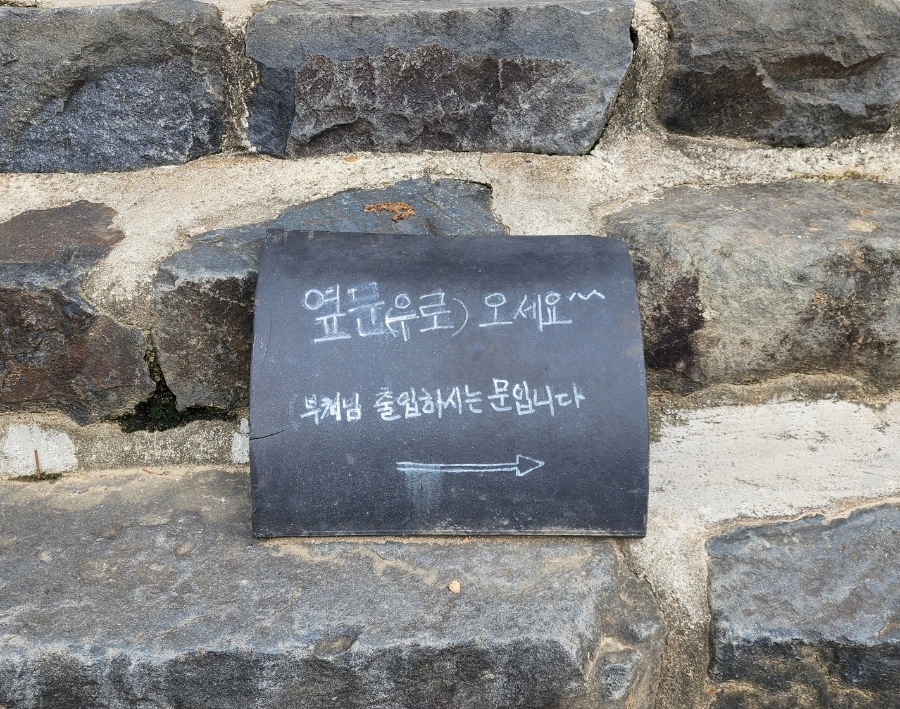 옆문(우로) 오세요~
(부쳐님 출입하시는 문입니다